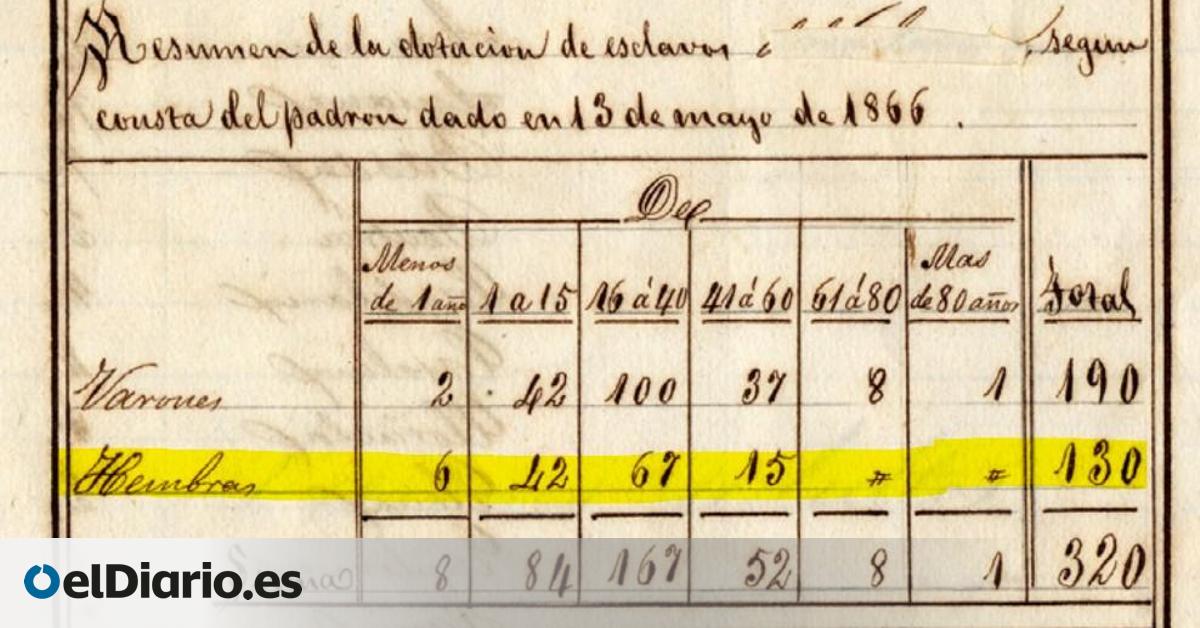 Resumen de la dotacion de esclavos segun
consta del padron dado en 13 de mayo de 1866.
De
Menos de 1 año 1 a 15 16 á 40 41 á 60 61 á 80 Mas de 80 años Total
Varones 2 42 100 37 8 1 190
Hembras 6 42 67 15 〃 〃 130
8 84 167 52 8 1 320
elDiario.es